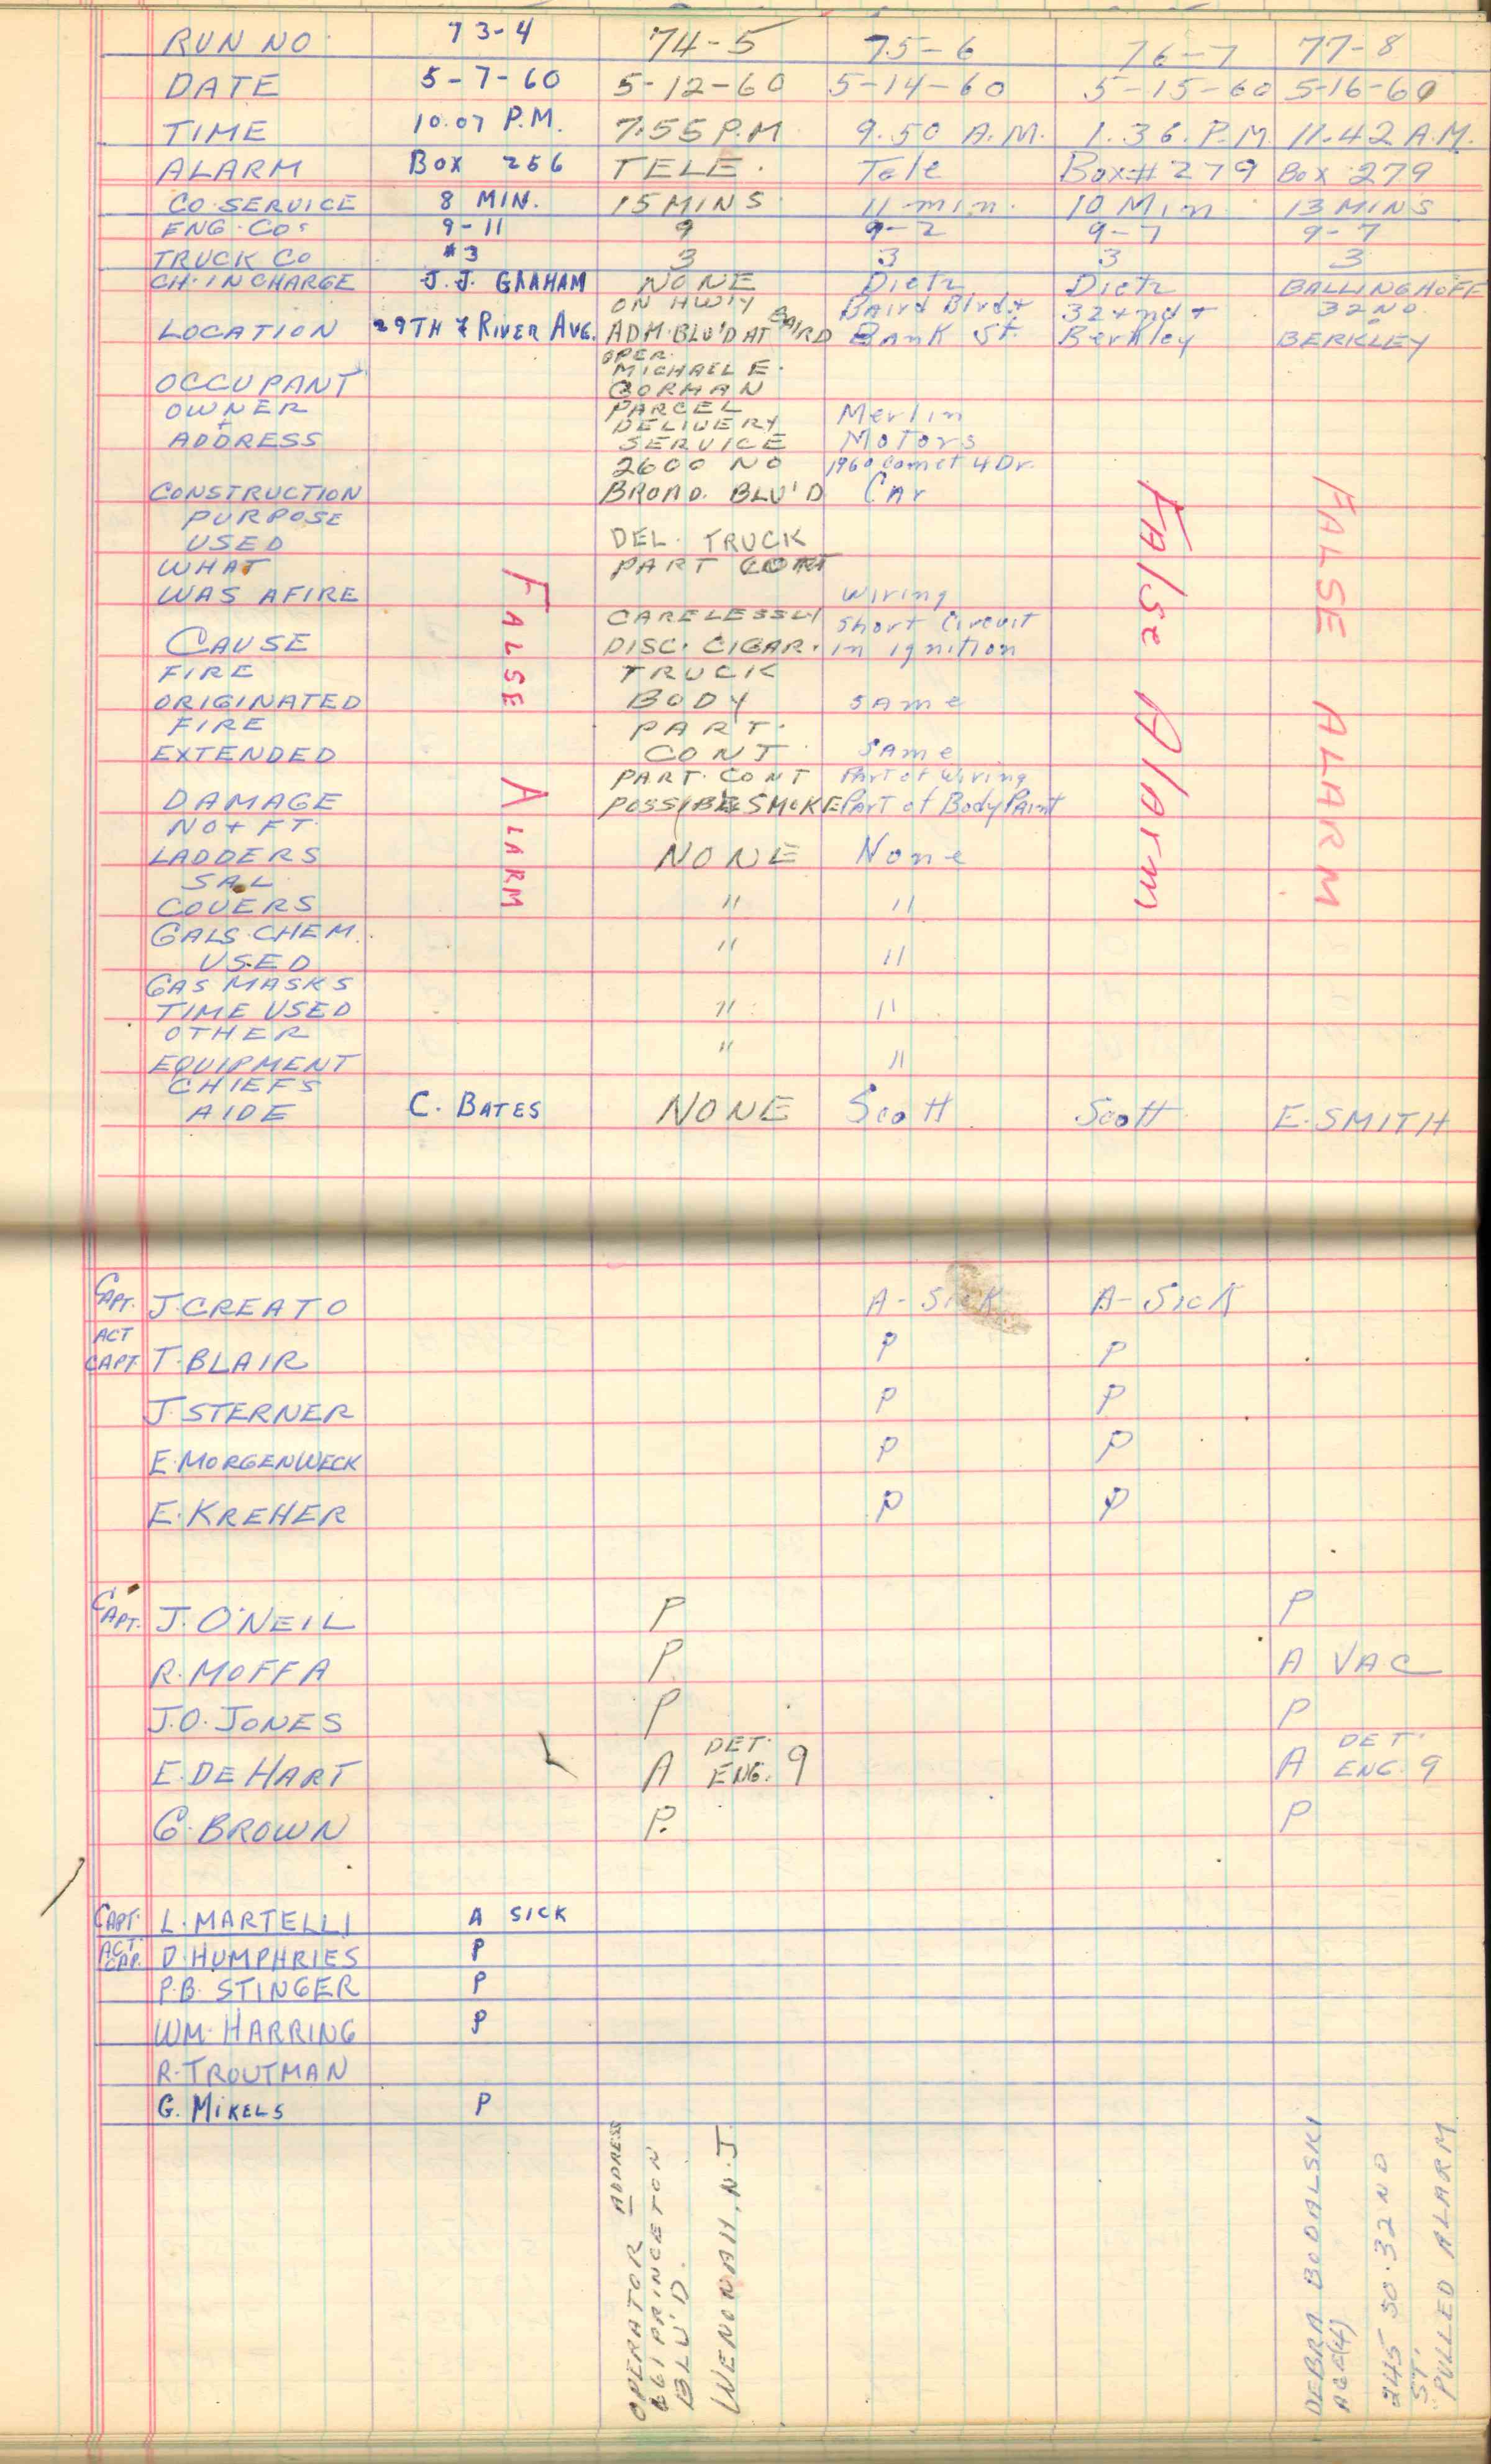 RUN NO. 73-4 74-5 75-6 76-7 77-8
DATE 5-7-60 5-12-60 5-14-60 5-15-60 5-16-60
TIME 10.07 P.M. 7.55 P.M. 9.50 A.M. 1.36. P.M. 11.42 A.M.
ALARM Box 256 TELE. Tele Box# 279 Box 279
CO SERVICE 8 MIN. 15 MINS 11 min. 10 Min 13 MINS
ENG. COS 9-11 9 9-2 9-7 9-7
TRUCK CO #3 3 3 3 3
CH. IN CHARGE J.J. GRAHAM NONE Dietz Dietz BALLINGHOFF
ON HWIY Baird Blvd + 32+nd + 32ND
LOCATION 29TH & RIVER AVE. ADM. BLU'D AT BAIRD Bank St. Berkley BERKLEY
OPER.
MICHAEL E.
OCCUPANT GORMAN
OWNER PARCEL Merlin
+ DELIVERY
ADDRESS SERVICE Motors
2600 NO 1960 Comet 4 Dr.
CONSTRUCTION BROAD. BLU'D Car
PURPOSE
USED DEL. TRUCK
WHAT PART CONT
WAS AFIRE Wiring
CARELESSLY Short Circuit
CAUSE DISC. CIGAR. in ignition
FIRE TRUCK
ORIGINATED BODY SAme
FIRE PART.
EXTENDED CONT SAme
PART. CONT Part of Wiring
DAMAGE POSSIBLE SMOKE Part of Body Paint
NO + FT.
LADDERS NONE None
SAL
COVERS " "
GALS CHEM.
USED " "
GAS MASKS
TIME USED " "
OTHER
EQUIPMENT " "
CHIEFS
AIDE C. BATES NONE Scott Scott E. SMITH
FALSE ALARM
FAlse AlArm
FALSE ALARM
CAPT. J. CREATO A - SICK A - SICK
ACT
CAPT. T. BLAIR P P
J. STERNER P P
E. MORGENWECK P P
E. KREHER P P
CAPT. J. O'NEIL P P
R. MOFFA P A VAC
J.O. JONES P P
DET. DET.
E. DE HART A ENG. 9 A ENG. 9
G. BROWN P. P
CAPT. L. MARTELLI A SICK
ACT. CAP. D. HUMPHRIES P
P.B. STINGER P
WM. HARRING P
R. TROUTMAN
G. MIKELS P
OPERATOR ADDRESS
661 PRINCETON
BLU'D.
WENONAH, N.J.
DEBRA BODALSKI
AGE (4)
245 SO. 32ND
ST.
PULLED ALARM